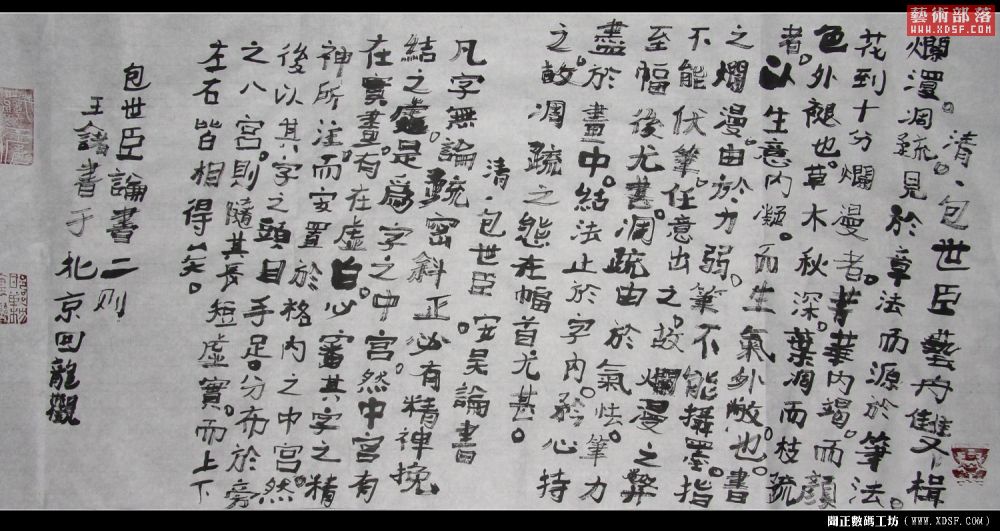 清·包世臣藝舟雙楫
爛漫。凋疏見於章法而源於筆法。
花到十分爛漫者。菁華內竭。而顏
色外褪也。草木秋深。葉凋而枝疏
者。以生意內凝。而生氣外敝也。書
之爛漫。由於力弱。筆不能攝墨。指
不能伏筆。任意出之。故爛漫之弊
至幅後尤甚。凋疏由於氣怯。筆力
盡於畫中。結法止於字內。矜心持
之。故凋疏之態在幅首尤甚。
清·包世臣 安吳論書
凡字無論疏密斜正必有精神挽
結之處。是為字之中宮。然中宮有
在實畫。有在虛白。必審其字之精
神所注。而安置於格內之中宮。然
後以其字之頭目手足。分布於旁
之八宮。則隨其長短虛實。而上下
左右皆相得矣。
包世臣論書二則
王鏞書于北京回龍觀
藝術部落
WWW.XDSF.COM
圖正數碼工坊(WWW.XDSF.COM)